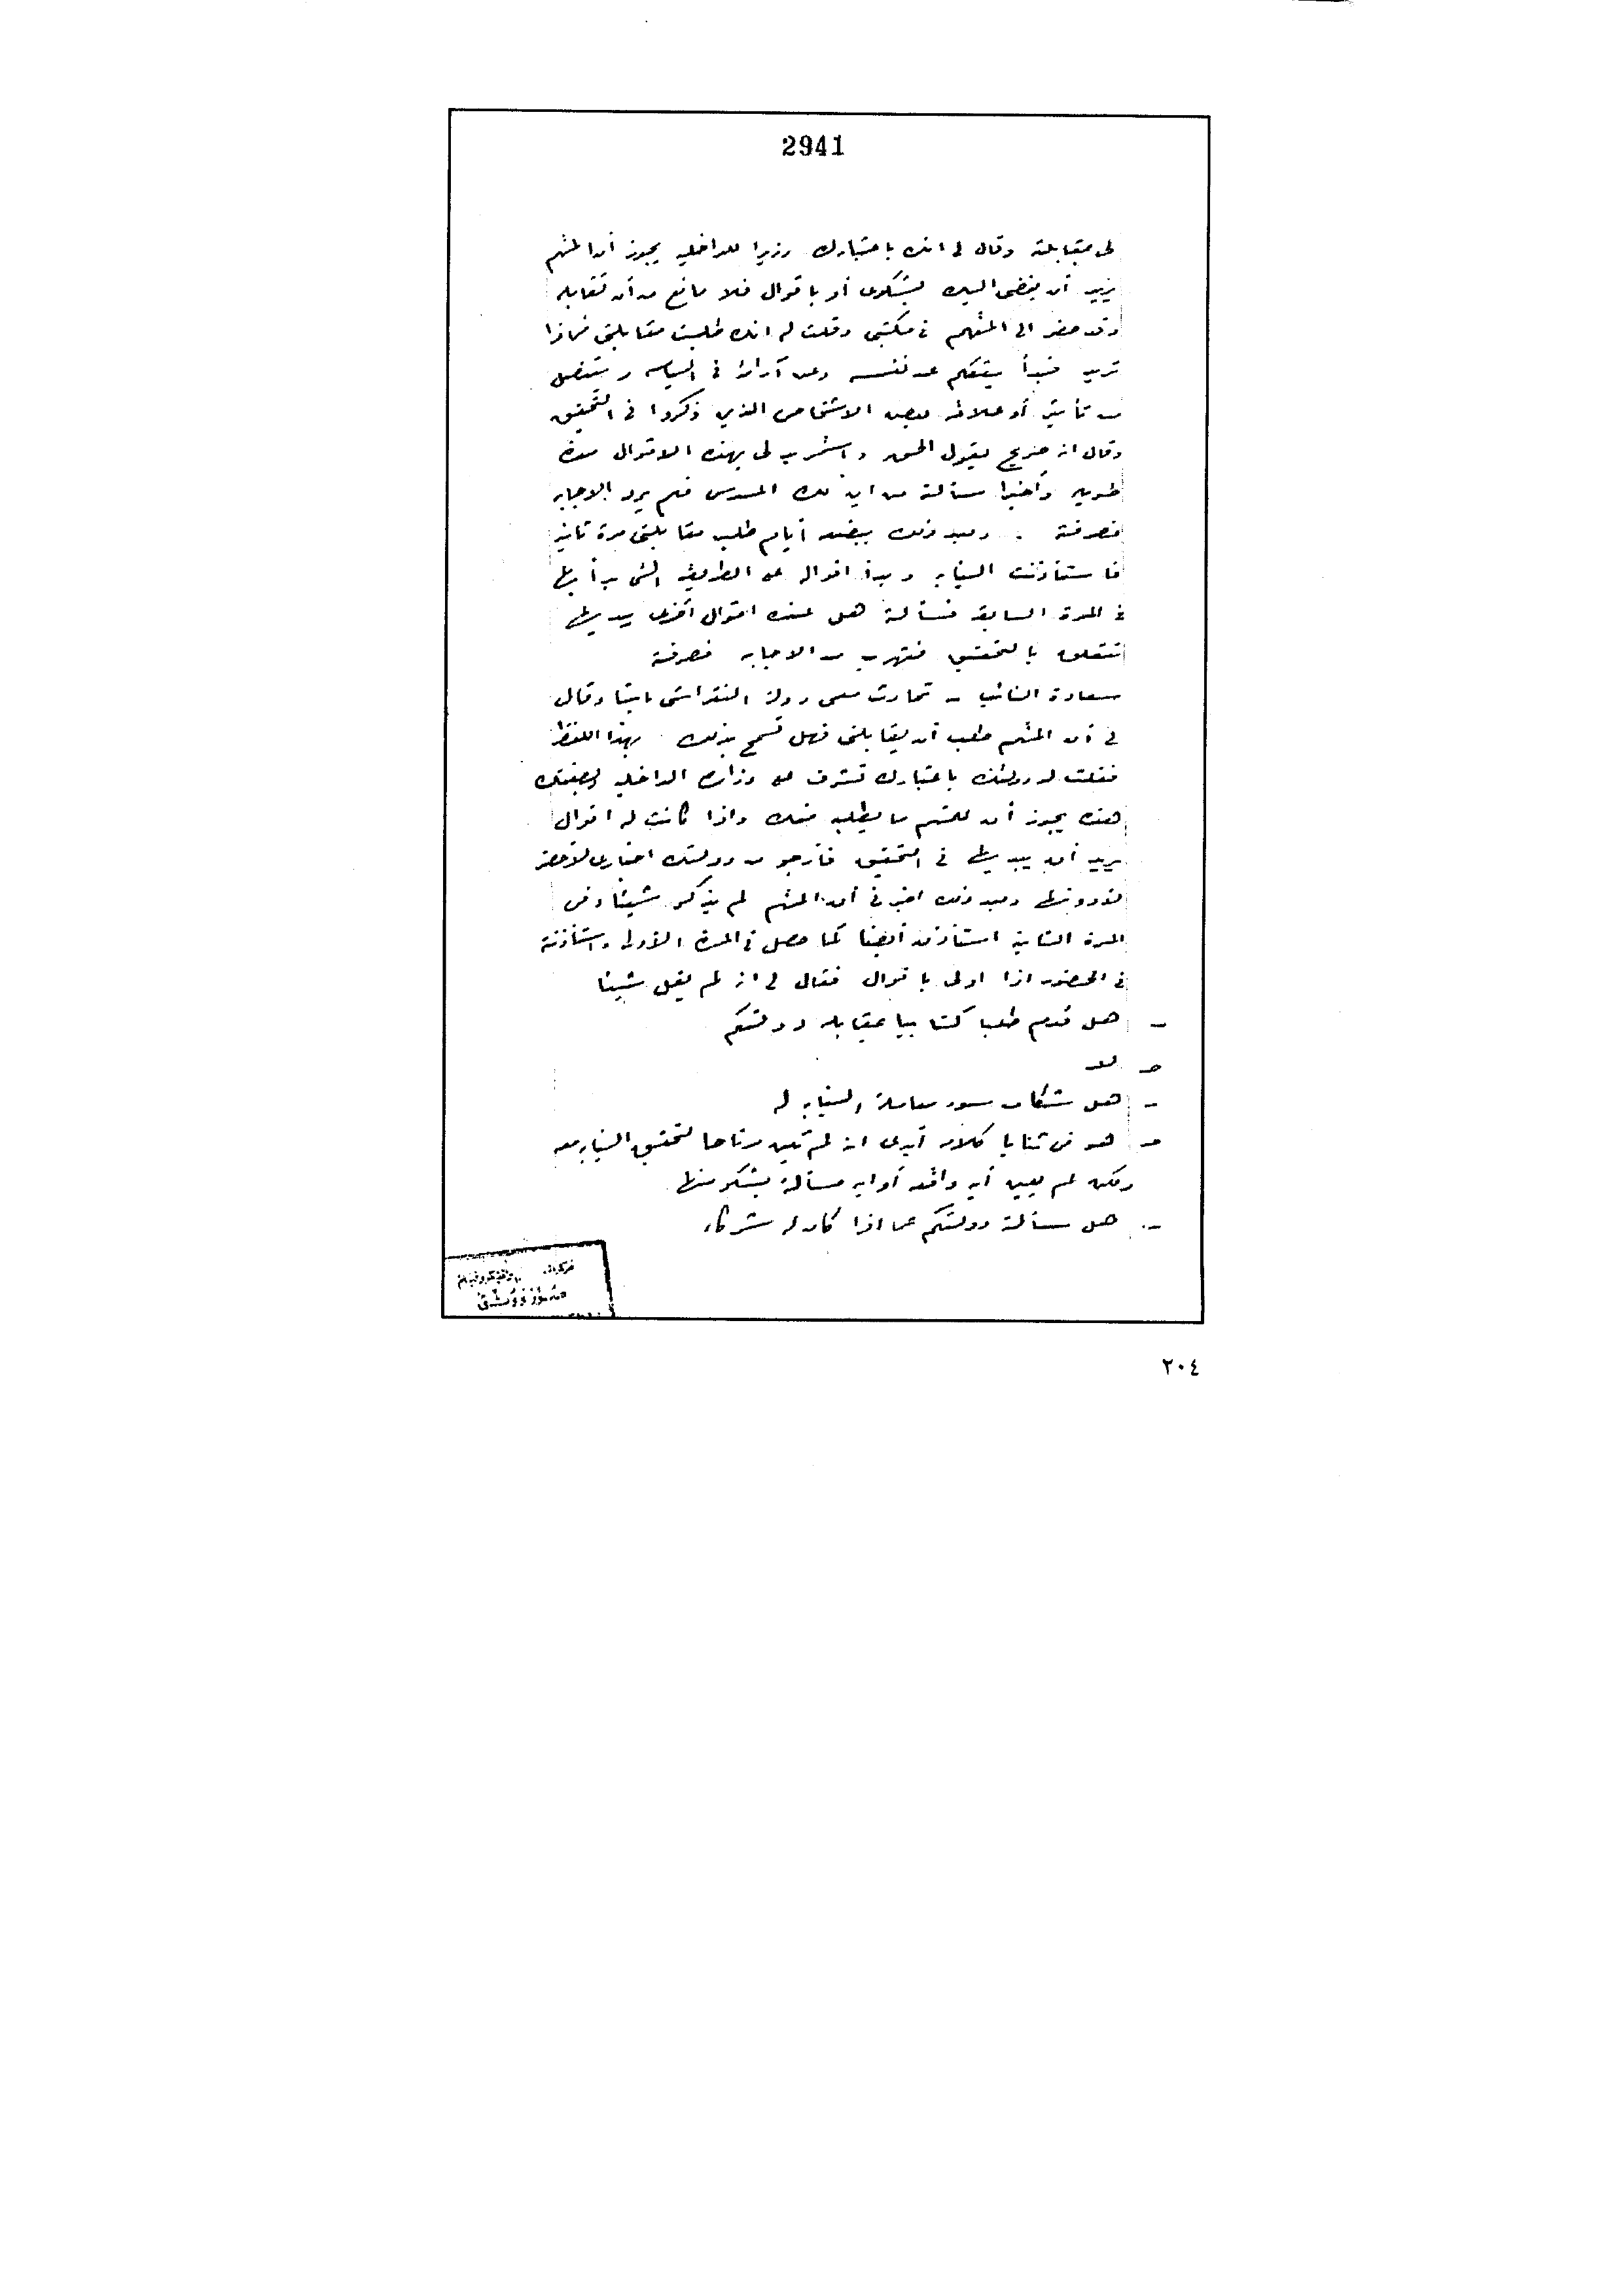 2941
لى بمقابلته وقال لى انك باعتبارك وزيرا للداخليه يجوز أن المتهم
يريد أن يفضى اليك بشكوى أو باقوال فلا مانع من أن تقابله
وقد حضر الى المتهم فى مكتبى وقلت له انك طلبت مقابلتى فماذا
تريد فبدأ يتكلم عن نفسه وعن آرائه فى السياسه ويتنصل
من تأثير أو علاقه ببعض الاشخاص الذين ذكروا فى التحقيق
وقال انه صريح يقول الحق واستمر يدلى بهذه الاقوال مدة
طويله وأخيرا سألته من اين لك المسدس فلم يرد الاجابه
فصرفته . وبعد ذلك ببضعة أيام طلب مقابلتى مرة ثانيه
فاستأذنت النيابه وبدأ اقواله على الطريقه التى بدأ بها
فى المرة السابقه فسألته هل عنده اقوال أخرى يبديها
تتعلق بالتحقيق فتهرب من الاجابه فصرفته
سعادة النائب - تحادث معى دولة النقراشى باشا وقال
لى أن المتهم طلب أن يقابلنى فهل تسمح بذلك بهذا اللفظ
فقلت له دولتك باعتبارك تشرف على وزارة الداخليه وبصفتك
هذه يجوز أن للمتهم ما يطلبه منك واذا كانت له اقوال
يريد أن يبديها فى التحقيق فأرجو من دولتك اخبارى لأحضر
لتدوينها وبعد ذلك اخبرنى أن المتهم لم يذكر شيئا وفى
المرة الثانيه استأذن أيضا كما حصل فى المرة الأولى واستأذنته
فى الحضور اذا ادلى باقوال فقال لى انه لم يقل شيئا
- هل قدم طلبا كتابيا بمقابلة دولتكم
حـ لا
- هل شكا من سوء معاملة النيابه له
حـ هو فى ثنايا كلامه أبدى انه لم يكن مرتاحا لتحقيق النيابه معه
ولكن لم يعين أيه واقعه أو ايه مسألة يشكو منها
- هل سألته دولتكم عما اذا كان له شركاء
٢٠٤